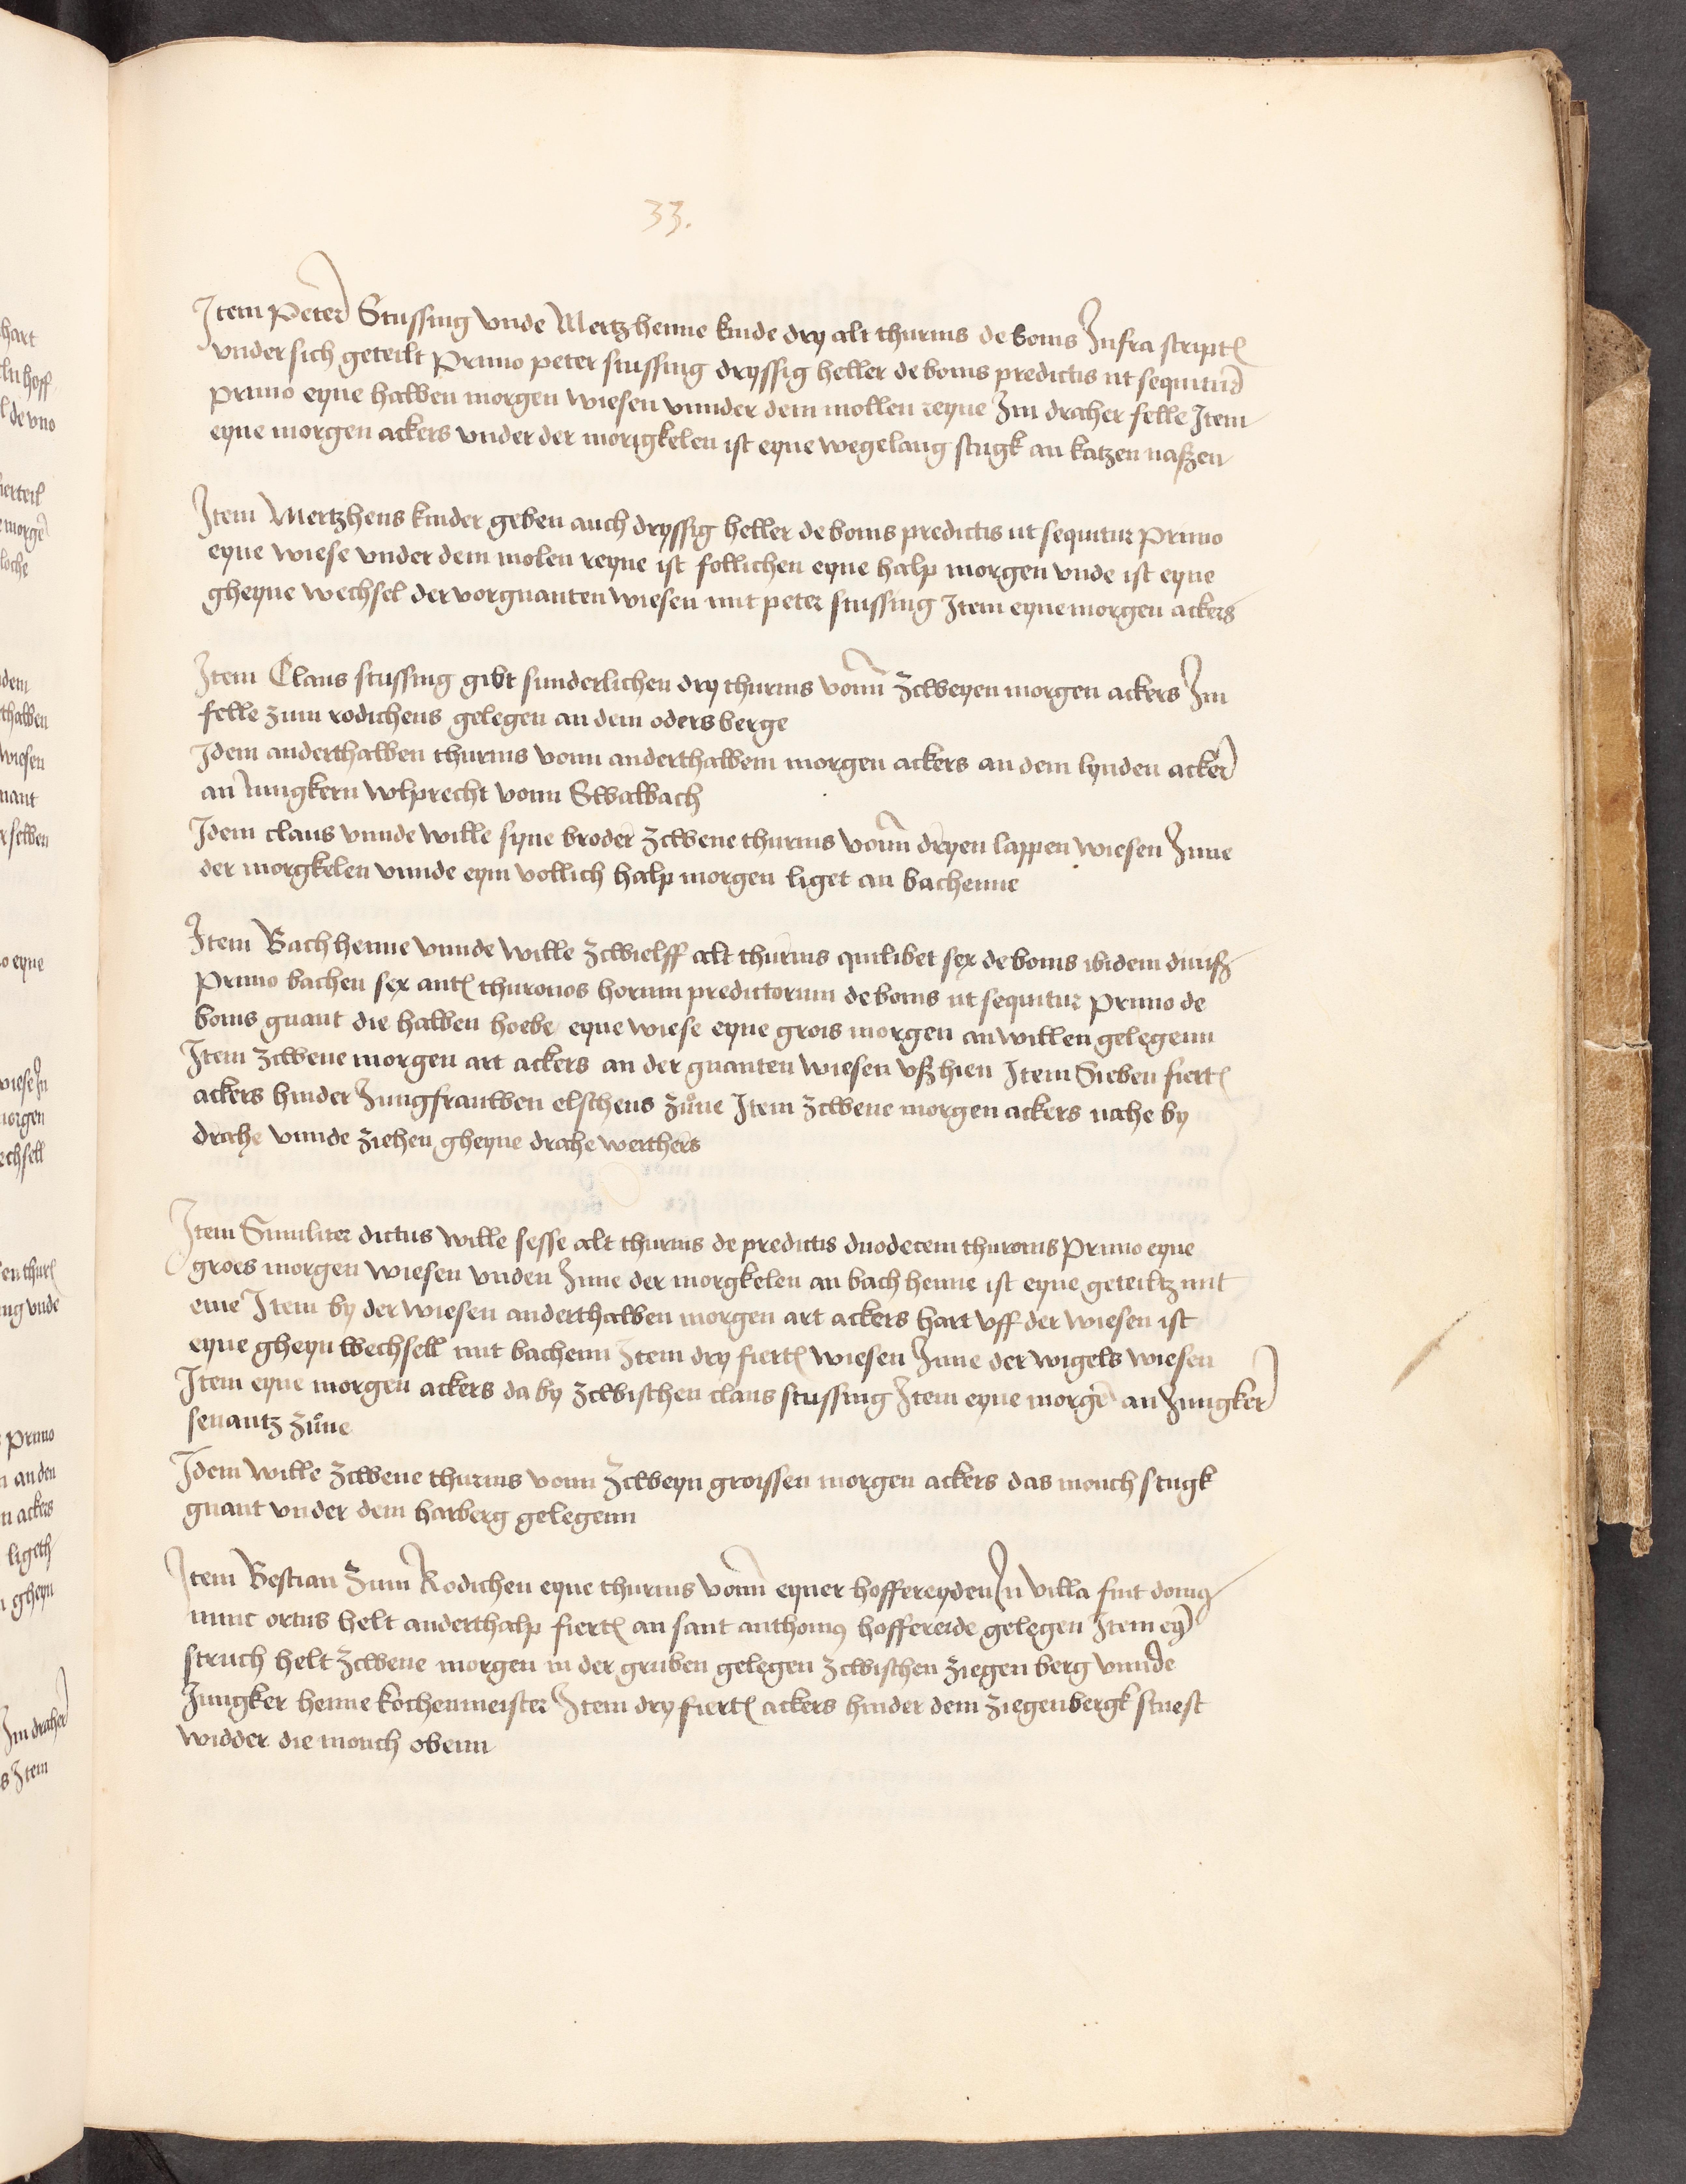 33.
Item Peter Stussing vnde Mertzhenne kinde dry alt thurnis de bonis Infra script
vnder sich geteilt Primo peter stussing dryssig heller de bonis predictis ut sequitur
primo eyne halben morgen wiesen vnnder dem mollen reyne Im dracher felle Item
eyne morgen ackers vnder der morigkelen ist eyne wegelang stugk an katzen naszen
Item Mertzhens kinder geben auch dryssig heller de bonis predictis ut sequitur Primo
eyne wiese vnder dem molen reyne ist follichen eyne halp morgen vnde ist eyne
gheyne wechsel der vorgnanten wiesen mit peter stussing Item eyne morgen ackers
Item Claus stussing gibt sunderlichen dry thurnis vonn zcweyen morgen ackers Im
felle zum rodichens gelegen an dem oders berge
Idem anderthalben thurnis vonn anderthalbem morgen ackers an dem lynden acker
an Jungkern wlprecht vonn Swalbach
Idem claus vnnde wille syne broder zcwene thurnis vonn dryen lappen wiesen Inne
der morgkelen vnnde eym vollich halp morgen liget an bachenne
Item Bachhenne vnnde wille zcwielff alt thurnis quilibet sex de bonis ibidem diuisz
Primo bachen sex antt thuronos horum predictorum de bonis ut sequitur Primo de
bonis gnant die halben hoebe eyne wiese eyne grois morgen an willen gelegenn
Item zcwene morgen art ackers an der gnanten wiesen vszhien Item Sieben fiert
ackers hinder Jungfrauwen elschens zůne Item zcwene morgen ackers nahe by
drahe vnnde ziehen gheyne drahe werthers
Item Similiter dictus wille sesse alt thurnis de predictis duodecem thuronis Primo eyne
groes morgen wiesen vnden Inne der morgkelen an bach henne ist eyne geteiltz mit
eme Item by der wiesen anderthalben morgen art ackers hart vff der wiesen ist
eyne gheyn wechsell mit bachenn Item dry fiert wiesen Inne der wigels wiesen
Item eyne morgen ackers da by zcwischen claus stussing Item eyne morgē an Jungker
senantz zůne
Idem wille zcwene thurnis vonn zcweyn groissen morgen ackers das monch stugk
gnant vnder dem harberg gelegenn
Item Bestian zum Rodichen eyne thurnis vonn eyner hoffereyden In villa fuit domus
nunc ortus helt anderthalp fiert an sant anthonius hoffereide gelegen Item ey
struch helt zcwene morgen in der gruben gelegen zcwischen ziegen berg vnnde
Jungker henne kochenmeister Item dry fiert ackers hinder dem ziegenbergk stuest
widder die monch obenn